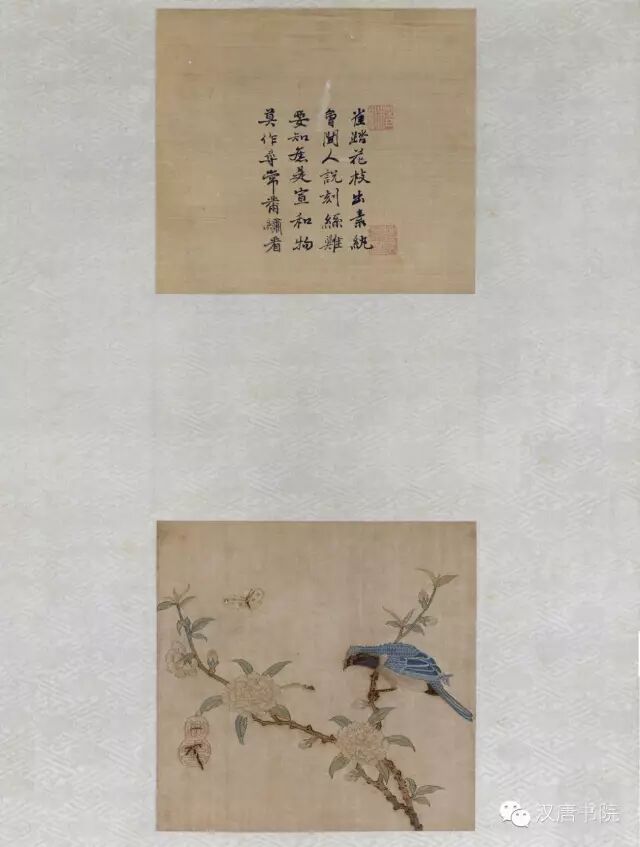 雀踏花枝出素紈
曾聞人說刻絲難
要知應是宣和物
莫作尋常黹繡看
汉唐书院